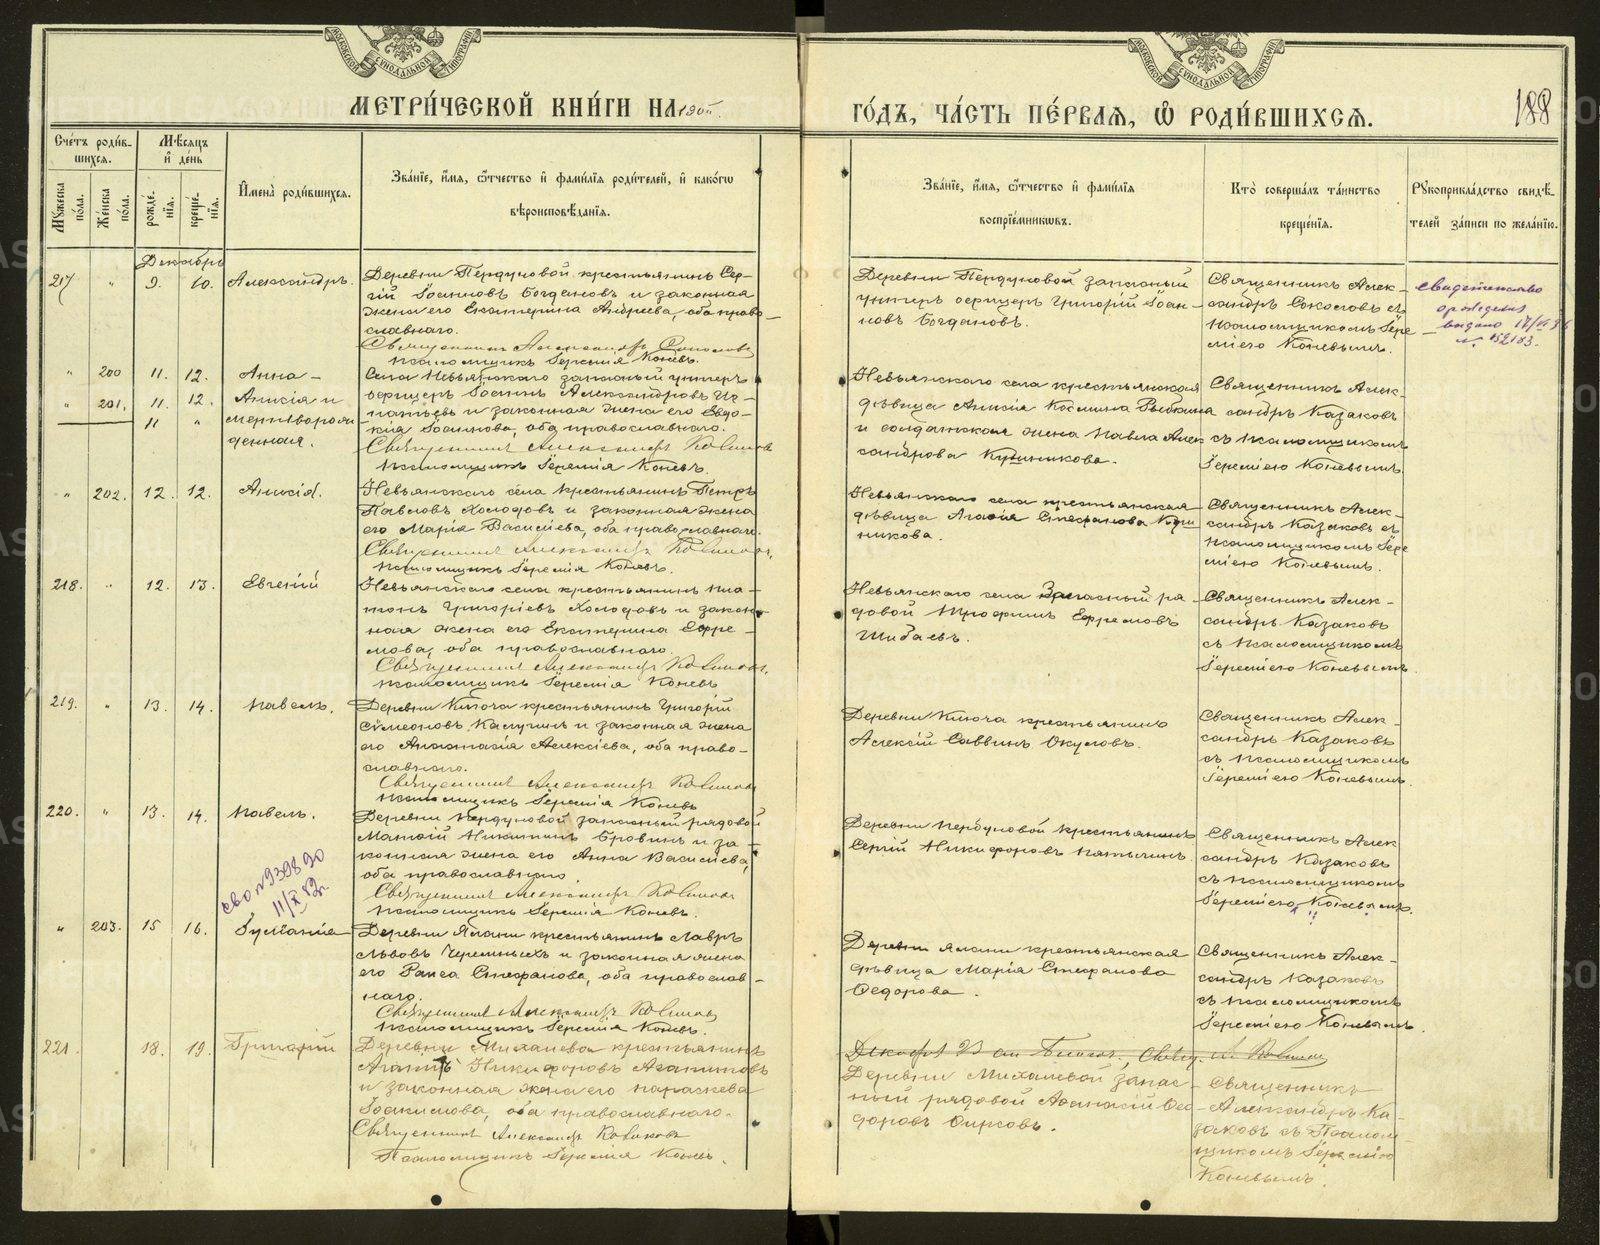 МОСКОВСКОЙ СѴНОДАЛЬНОЙ ТИПОГРАФІИ
МЕТРИ́ЧЕСКОЙ КНИ́ГИ НА
ГО́ДЪ, ЧА́СТЬ ПЕ́РВАѦ, Ѡ РОДИ́ВШИХСѦ.
188
Сче́тъ роди́в-
шихсѧ.
Мѣ́сѧцъ
и҆ де́нь
Мꙋ́жеска
по́ла.
Же́нска
по́ла.
рожде́-
нїѧ.
креще́-
нїѧ.
И҆мена̀ роди́вшихсѧ.
Зва́нїе, и҆́мѧ, ѻ҆́тчество и҆ фами́лїѧ роди́телей, и҆ како́гѡ
вѣроисповѣ́данїѧ.
Зва́нїе, и҆́мѧ, ѻ҆́тчество и҆ фами́лїѧ
воспрїе́мникѡвъ.
Кто̀ соверша́лъ та́инство
креще́нїѧ.
Рꙋкоприкла́дство свидѣ́-
телей за́писи по жела́нїю.
Декабрь
217 " 9. 10. Александръ.
Деревни Пердуновой крестьянинъ Сер-
гій Іоанновъ Богдановъ и законная
жена его Екатерина Андреева, оба право-
славнаго.
Священникъ Александръ Соколовъ
Псаломщикъ Іеремія Коневъ.
Деревни Пердуновой запасный
унтеръ офицеръ Григорій Іоан-
новъ Богдановъ.
Священникъ Алек-
сандръ Соколовъ съ
псаломщикомъ Іере
міею Коневымъ.
свидетельство
о рождении
выдано
" 200 11. 12. Анна
" 201. 11. 12. Анисія и
11 " мертворож
денная.
Села Невьянскаго запасный унтеръ
офицеръ Іоаннъ Александровъ Иг-
натьевъ и законная жена его Евдо-
кія Іоаннова, оба православнаго.
Священникъ Александръ Казаковъ
Псаломщикъ Іеремія Коневъ.
Невьянскаго села крестьянская
дѣвица Анисія Космина Рыбкина
и солдатская жена Павла Алек
сандрова
Священникъ Алек-
сандръ Казаковъ
съ псаломщикомъ
Іереміею Коневымъ.
" 202. 12. 12. Анисія.
Невьянскаго села крестьянинъ Петръ
Павловъ Холодовъ и законная жена
его Марія Василіева, оба православнаго.
Священникъ Александръ Казаковъ.
Псаломщикъ Іеремія Коневъ.
Невьянскаго села крестьянская
дѣвица Агафія Стефанова
никова.
Священникъ Алек-
сандръ Казаковъ съ
псаломщикомъ Іере
міею Коневымъ.
218. " 12. 13. Евгеній
Невьянскаго села крестьянинъ Пла-
тонъ Григоріевъ Холодовъ и закон-
ная жена его Екатерина Ефре-
мова, оба православнаго.
Священникъ Александръ Казаковъ.
Псаломщикъ Іеремія Коневъ
Невьянскаго села Запасный ря-
довой Трофимъ Ефремовъ
Шибаевъ.
Священникъ Алек-
сандръ Казаковъ
съ псаломщикомъ
Іереміею Коневымъ.
219. " 13. 14. Павелъ.
Деревни Ключа крестьянинъ Григорій
Сѵмеоновъ Калугинъ и законная жена
его Анастасія Алексіева, оба право-
славнаго.
Священникъ Александръ Казаковъ
Псаломщикъ Іеремія Коневъ
Деревни Ключа крестьянинъ
Алексій Саввинъ Окуловъ.
Священникъ Алек-
сандръ Казаковъ
съ псаломщикомъ
Іереміею Коневымъ.
220. " 13. 14. Павелъ.
Деревни Пердуновой запасный рядовой
Матѳій Никитинъ Бровинъ и за-
конная жена его Анна Василіева,
оба православнаго.
Священникъ Александръ Казаковъ
Псаломщикъ Іеремія Коневъ.
Деревни Пердуновой крестьянинъ
Сергій Никифоровъ Пятыгинъ.
Священникъ Алек
сандръ Казаковъ
съ псаломщикомъ
Іереміею Коневымъ.
" 203. 15 16. Іуліанія
Деревни Ялани крестьянинъ Лавръ
Львовъ Черемныхъ и законная жена
его Раиса Стефанова, оба православ-
наго.
Священникъ Александръ Казаковъ
Псаломщикъ Іеремія Коневъ.
Деревни Ялани крестьянская
дѣвица Марія Стефанова
Ѳедорова.
Священникъ Алек-
сандръ Казаковъ
съ псаломщикомъ
Іереміею Коневымъ.
221. 18. 19. Григорій
Деревни Михалевой крестьянинъ
Агапитъ Никифоровъ Агапитовъ
и законная жена его Параскева
Іоакимова, оба православнаго.
Священникъ Александръ Казаковъ
Псаломщикъ Іеремія Коневъ.
Деревни Михалевой запас-
ный рядовой Аѳанасій Ѳео-
доровъ Фирсовъ.
Священникъ
Александръ Ка-
заковъ съ Псалом-
щикомъ Іереміею
Коневымъ.